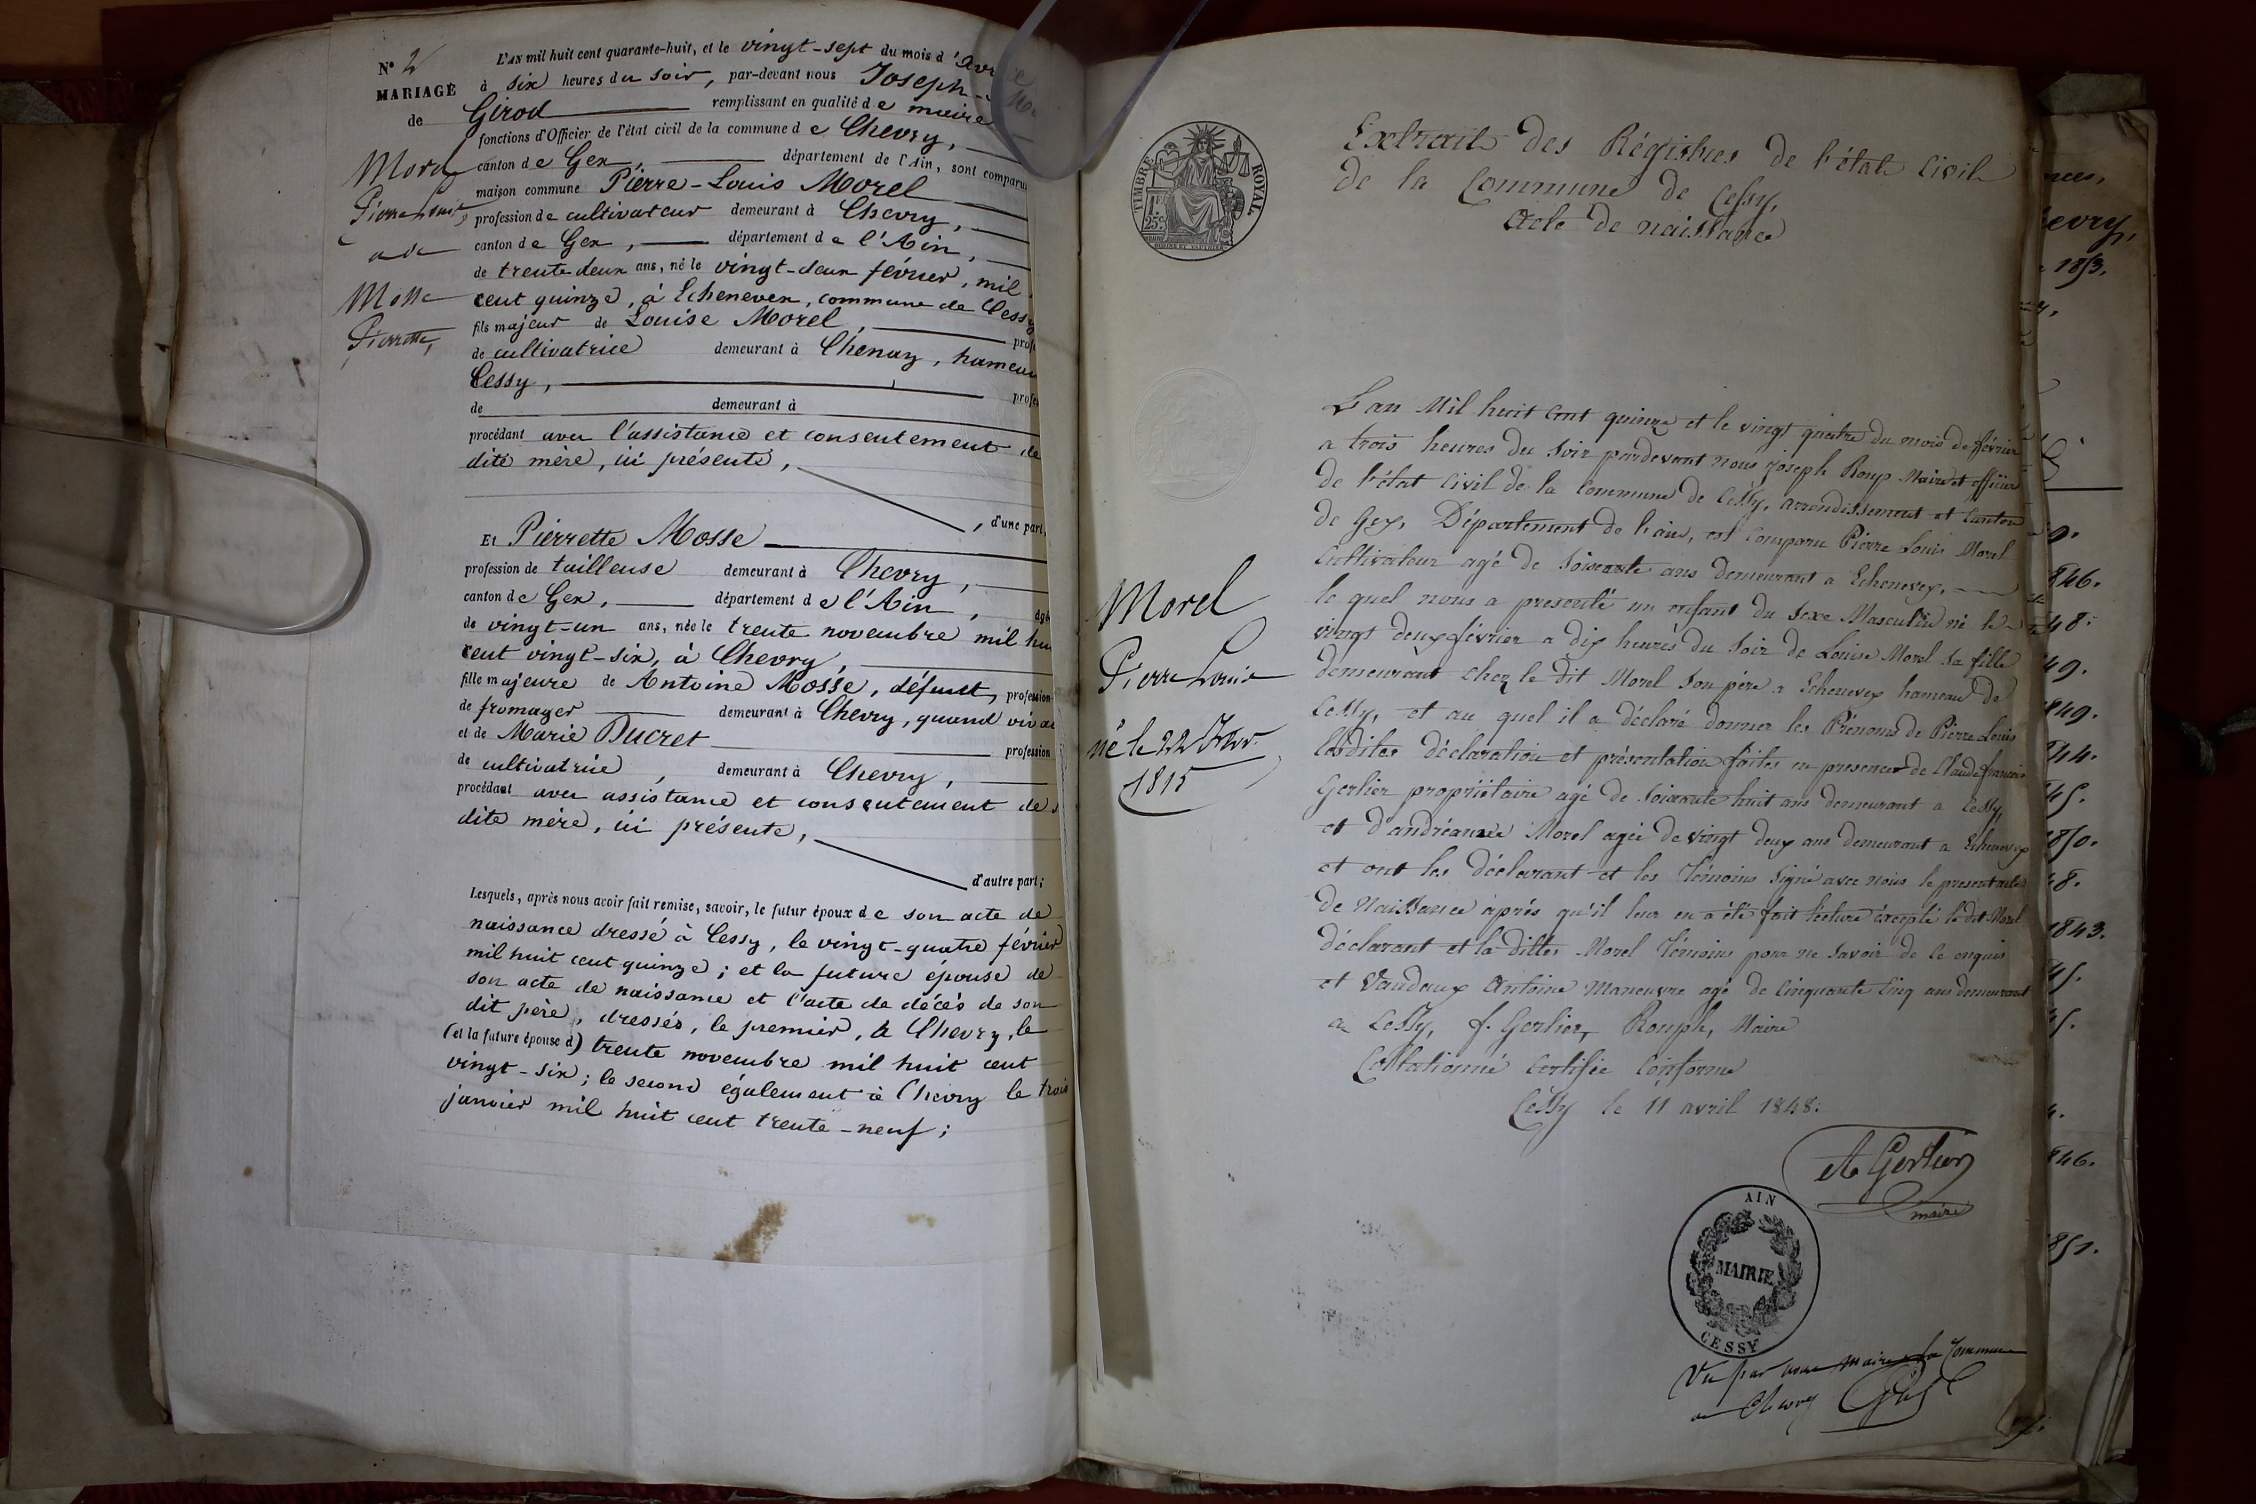 N° 2
MARIAGE
de
Morel
Pierre Louis,
et de
Mosse
Pierrette,
L'AN mil huit cent quarante-huit, et le vingt-sept du mois d'Avr
à six heures du soir, par-devant nous Joseph-
Girod remplissant en qualité de maire
fonctions d'Officier de l'état civil de la commune de Chevry,
canton de Gex, département de l'Ain, sont comparu
maison commune Pierre-Louis Morel
profession de cultivateur demeurant à Chevry,
canton de Gex, département de l'Ain,
de trente deux ans, né le vingt-deux février, mil
cent quinze, à Echenevex, commune de Cessy
fils majeur de Louise Morel, prof
de cultivatrice demeurant à Chenaz, hameau
Cessy, profe
de demeurant à
procédant avec l'assistance et consentement de
dite mère, ici présente,
, d'une part,
Et Pierrette Mosse
profession de tailleuse demeurant à Chevry,
canton de Gex, département de l'Ain, âgé
de vingt-un ans, née le trente novembre mil hu
cent vingt-six, à Chevry,
fille majeure de Antoine Mosse, défunt, profession
de fromager demeurant à Chevry, quand viva
et de Marie Ducret profession
de cultivatrice, demeurant à Chevry,
procédant avec assistance et consentement de s
dite mère, ici présente,
d'autre part;
Lesquels, après nous avoir fait remise, savoir, le futur époux de son acte de
naissance dressé à Cessy, le vingt-quatre février
mil huit cent quinze; et la future épouse de
son acte de naissance et l'acte de décès de son
dit père, dressés, le premier, à Chevry, le
(et la future épouse d) trente novembre mil huit cent
vingt-six; le second également à Chevry le trois
janvier mil huit cent trente-neuf;
TIMBRE ROYAL
1F 25c
Extrait des Régistres de l'état Civil
de la Commune de Cessy,
Acte de naissance
Morel
Pierre Louis
né le 22 Fév.
1815
L'an Mil huit cent quinze et le vingt quatre du mois de février
a trois heures du soir pardevant nous joseph Rouph Maire et officier
de l'état Civil de la Commune de Cessy, arrondissement et Canton
de Gex, Département de l'ain, est Comparu Pierre Louis Morel
Cultivateur agé de soixante ans demeurant a Echenevex,
le quel nous a presenté un enfant du sexe Masculin né le
vingt deux février a dix heures du soir de Louise Morel sa fille
demeurant chez le dit Morel son père a Echenevex hameau de
Cessy, et au quel il a déclaré donner les Prénoms de Pierre Louis
lesdites déclaration et présentation faites en presence de Claude francois
Gerlier propriétaire agé de soixante huit ans demeurant a Cessy,
et d'andréanne Morel agée de vingt deux ans demeurant a Echenevex
et ont les déclarant et les Témoins signé avec nous le present acte
de Naissance après qu'il leur en a été fait lecture excepté le dit Morel
déclarant et la ditte Morel Témoins pour ne savoir de ce enquis
et Vaudaux Antoine Maneuvre agé de Cinquante Cinq ans demeurant
a Cessy, f. Gerlier, Rouph, Maire
Collationné Certifié Conforme
Cessy le 11 avril 1848:
Gerlier
maire
AIN
MAIRIE
CESSY
Vu par nous Maire de la Commune
de Chevry
evry,
1853.
846.
48:
49.
849.
844.
45.
850.
48.
1843.
45.
846.
851.